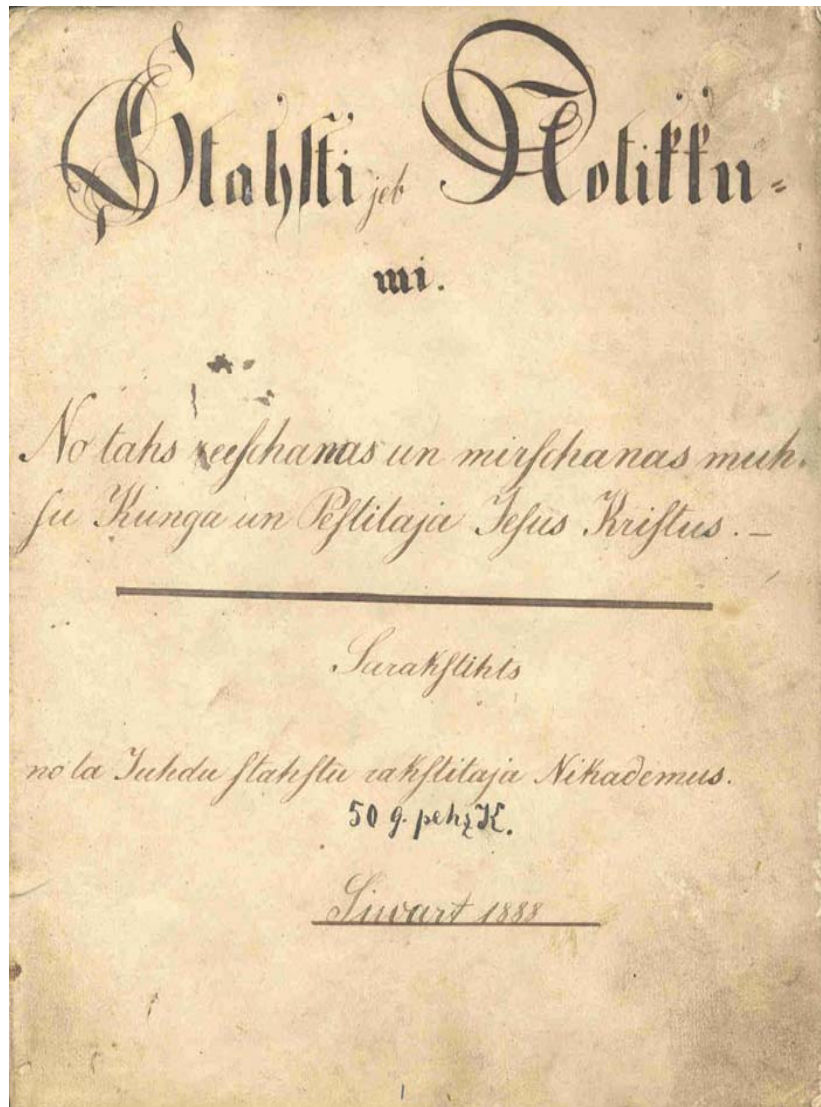 Stahsti jeb Notikku-
mi.
No tahs zeeschanas un mirschanas muh-
ſu Kunga un Peſtitaja Jeſus Kriſtus. –
Sarakſtihts
no ta Juhdu ſtahſtu rakſtitaja Nikademus.
50 g. pehz K.
Siwart 1888
1